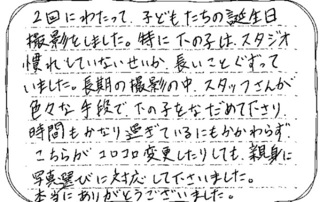 2回にわたって、子どもたちの誕生日
撮影をしました。特に下の子は、スタジオ
慣れしていないせいか、長いことぐずって
いました。長期の撮影の中、スタッフさんが
色々な手段で下の子をなだめて下さり
時間もかなり過ぎているにもかかわらず
こちらがコロコロ変更したりしても、親身に
写真選びに対応して下さいました。
本当にありがとうございました。